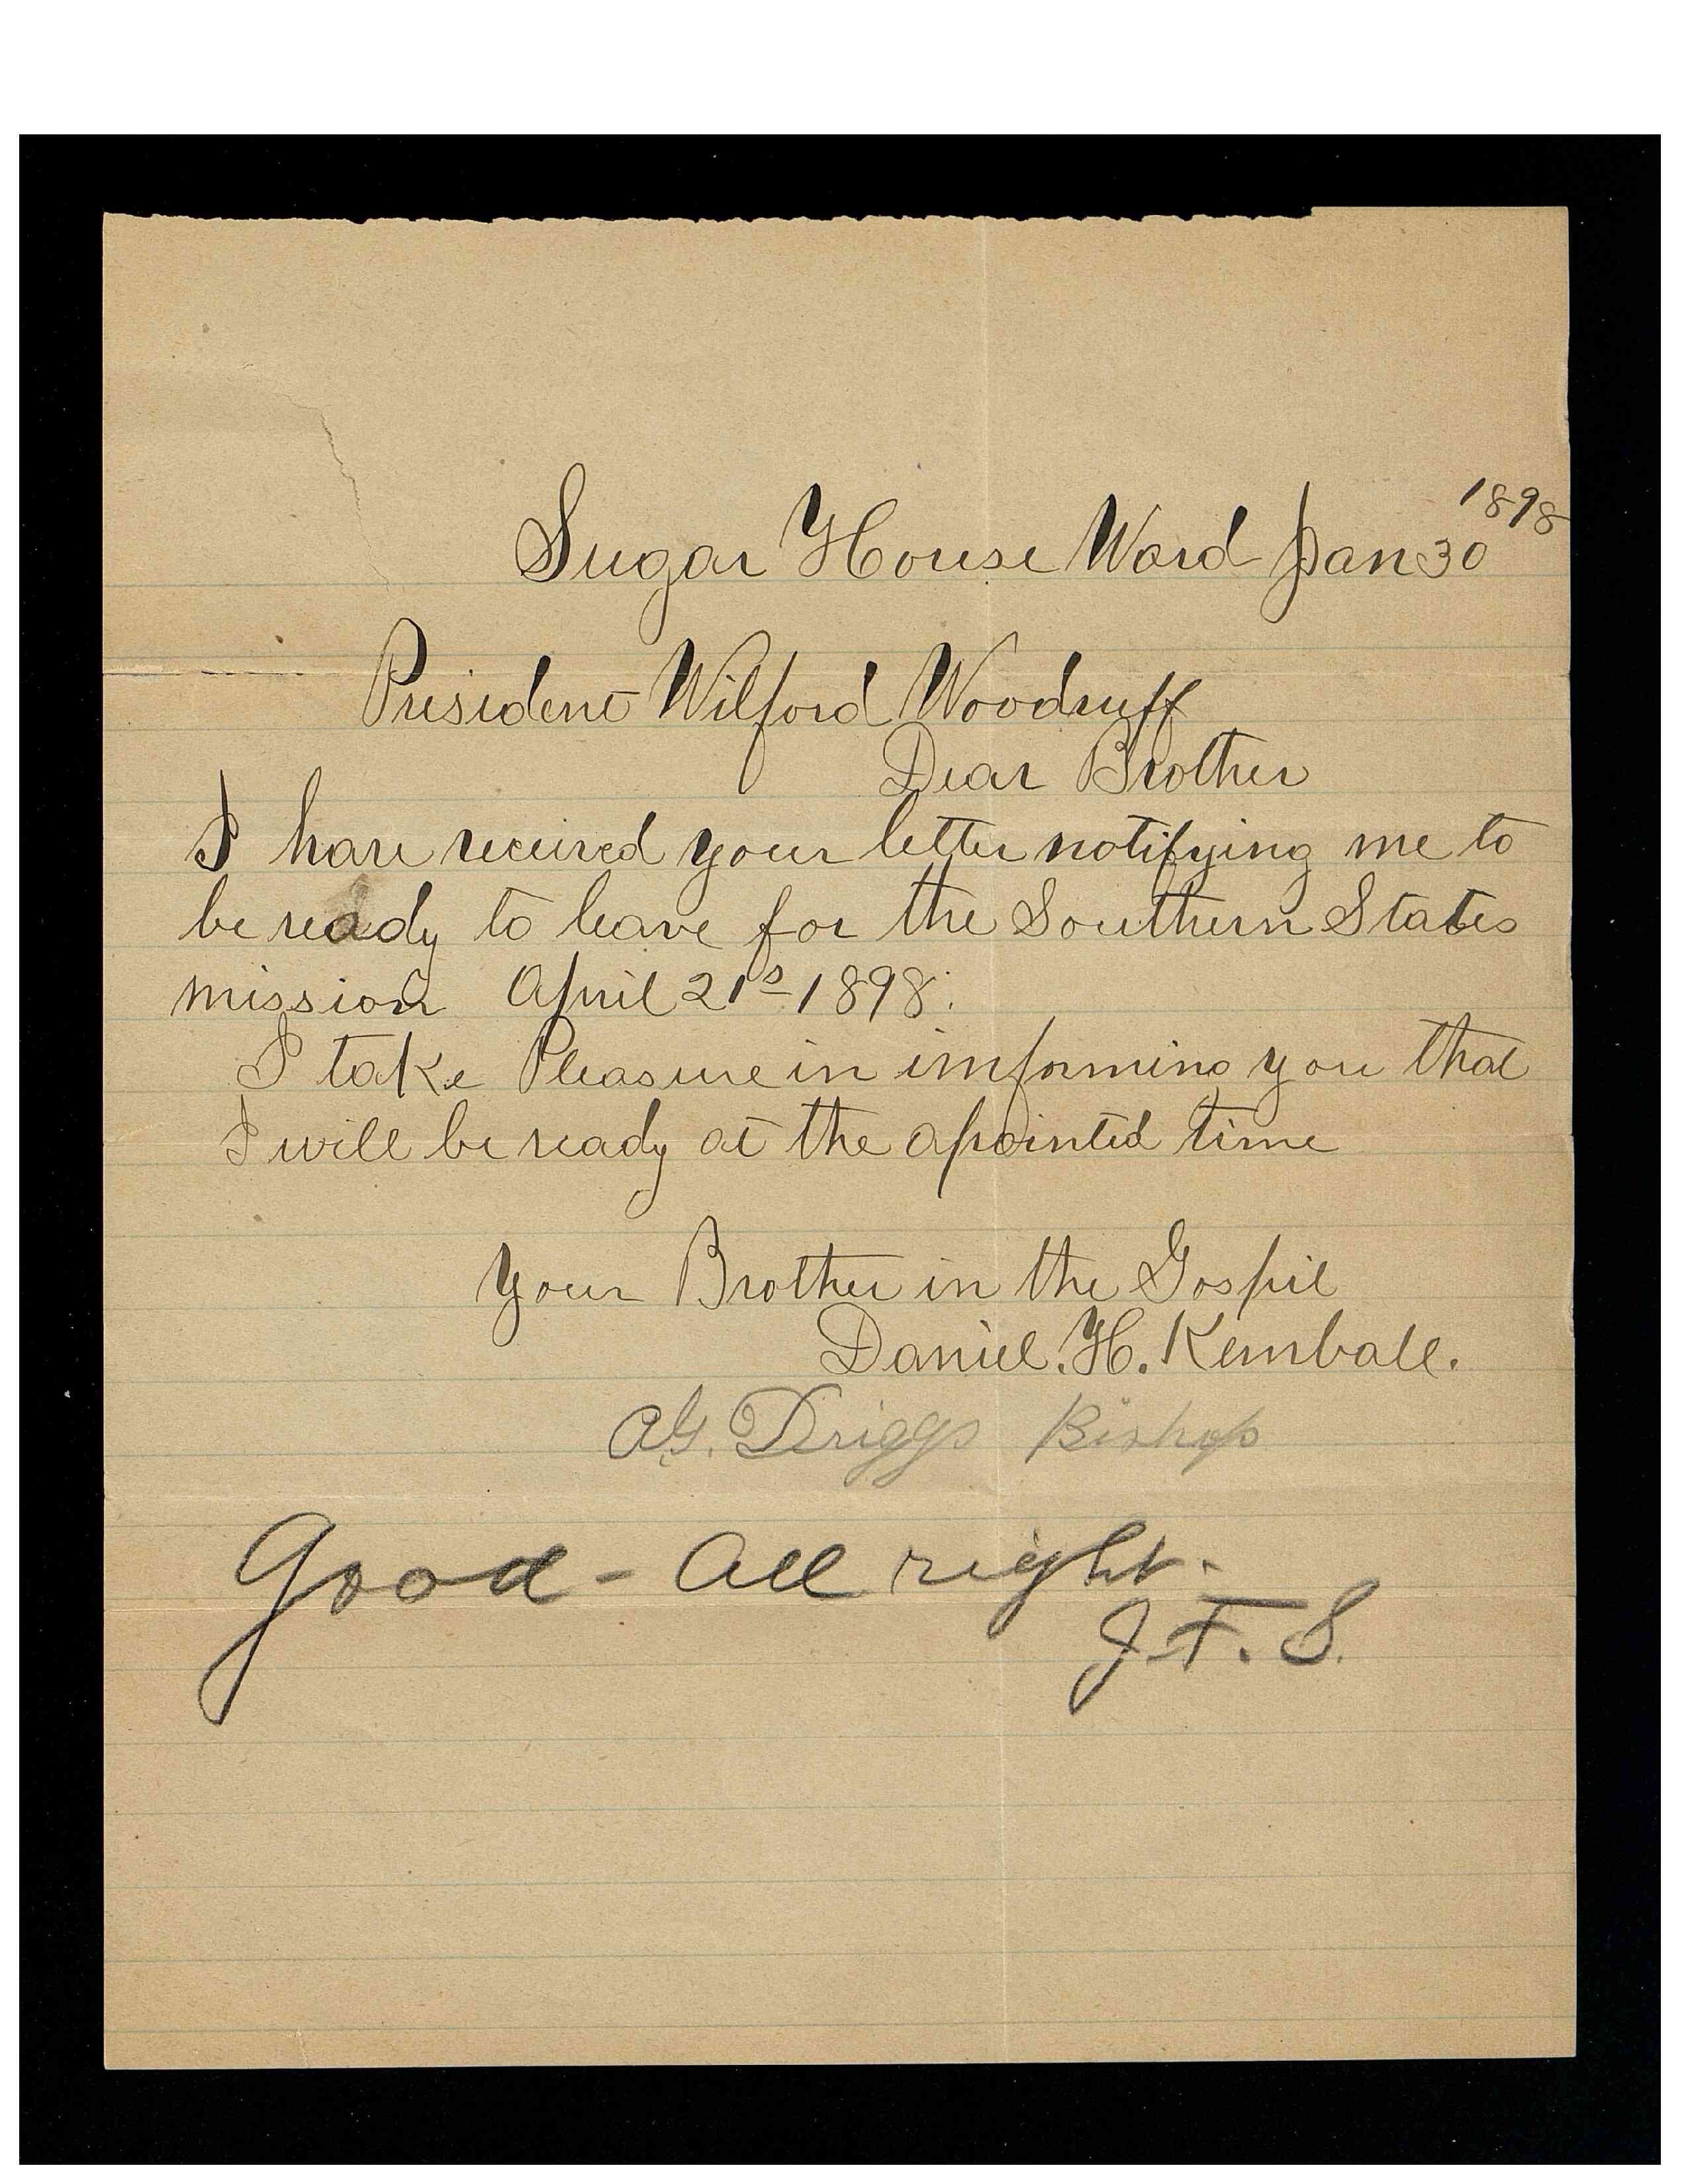 1898
Sugar House Ward Jan 30
President Wilford Woodruff
Dear Brother
I have received your letter notifying me to
be ready to leave for the Southern States
mission April 21s 1898.
I take Pleasure in imforming you that
I will be ready at the apointed time
Your Brother in the Gospel
Daniel. H. Kemball.
A G. Driggs Bishop
Good - All right.
J. F. S.